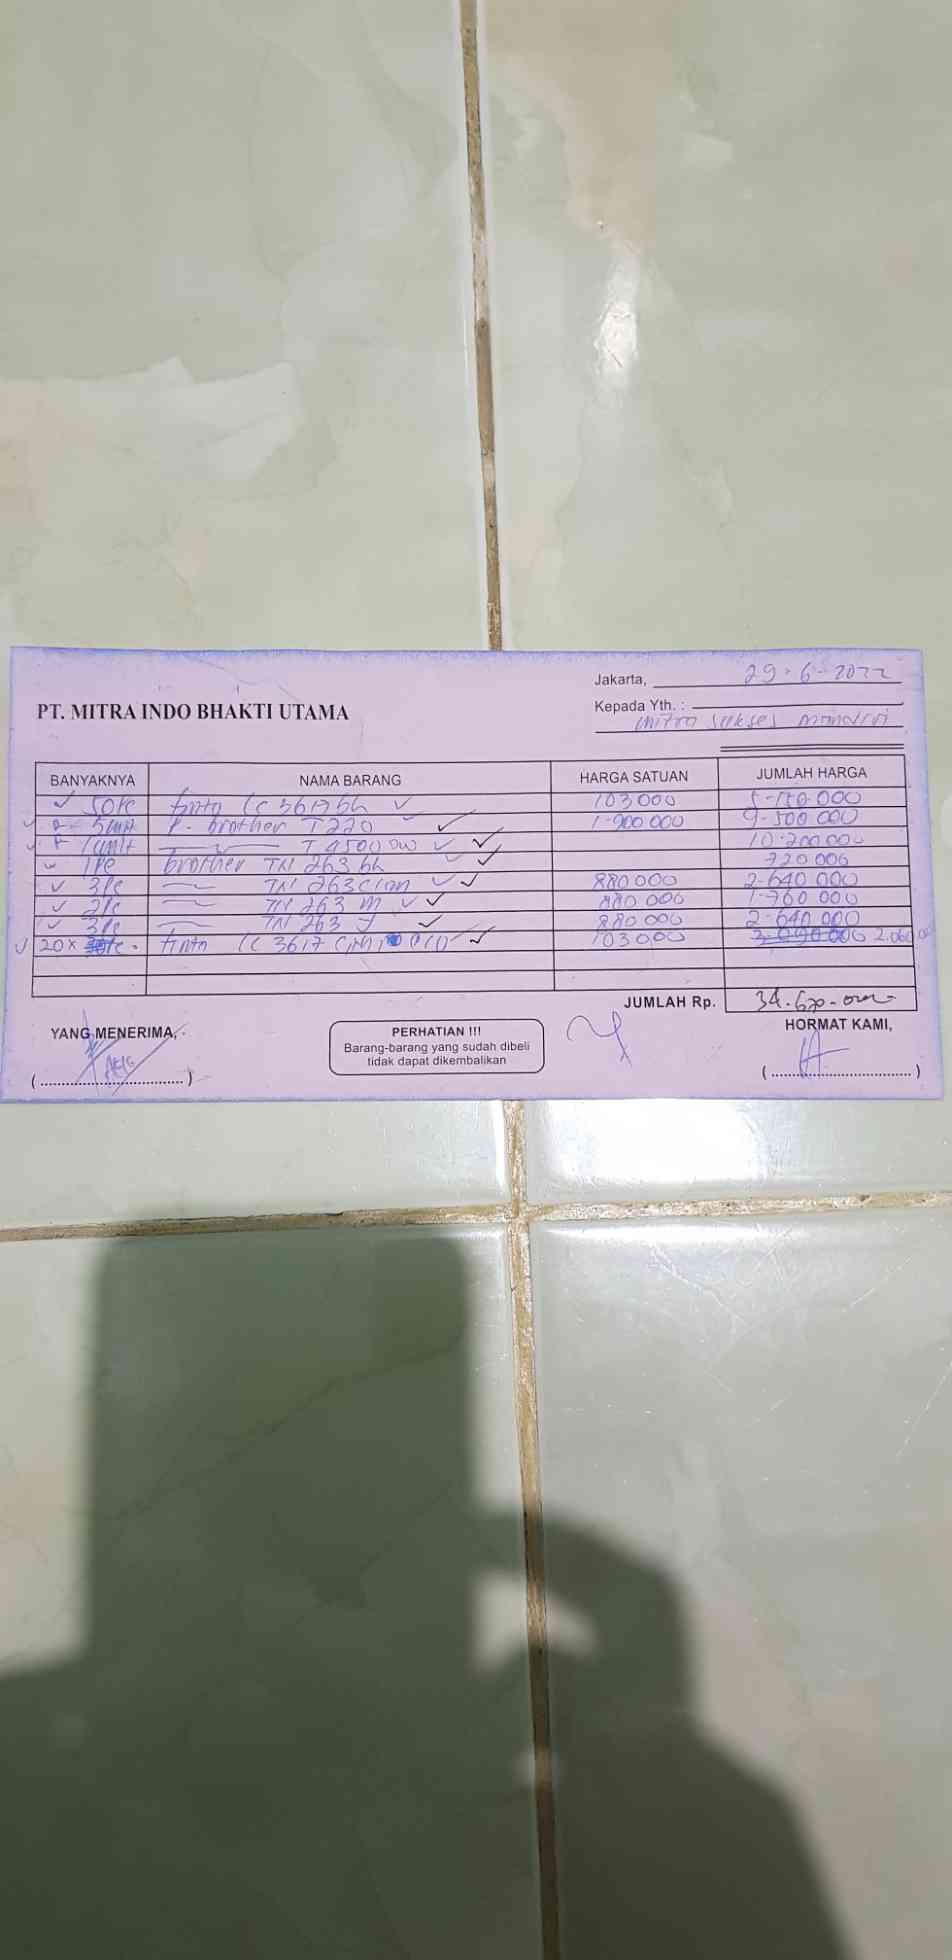 Jakarta, 29-6-2022
PT. MITRA INDO BHAKTI UTAMA
Kepada Yth. :
mitra sukses mandiri
BANYAKNYA NAMA BARANG HARGA SATUAN JUMLAH HARGA
50 pc tinta LC 3617 bk 103000 5-150.000
5 unit P. brother T220 1-900 000 9-500 000
1 unit T4500 DW 10-200 000
1 pc brother TN 263 bk 720 000
3 pc TN 263 cian 880 000 2-640 000
2 pc TN 263 m 880 000 1-760 000
3 pc TN 263 y 880 000 2-640 000
20 x tinta LC 3617 103 000 3-090 000 2.060
JUMLAH Rp.
YANG MENERIMA,
PERHATIAN !!!
Barang-barang yang sudah dibeli
tidak dapat dikembalikan
HORMAT KAMI,